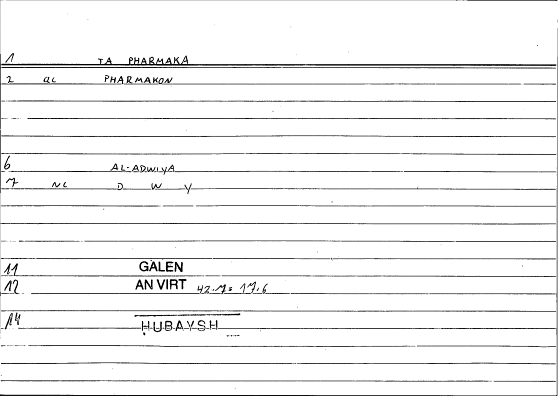 1 TA PHARMAKA
2 GL PHARMAKON
6 AL-ADWIYA
7 NL D W Y
11 GALEN
12 AN VIRT 42.7: 17.6
14 HUBAYSH